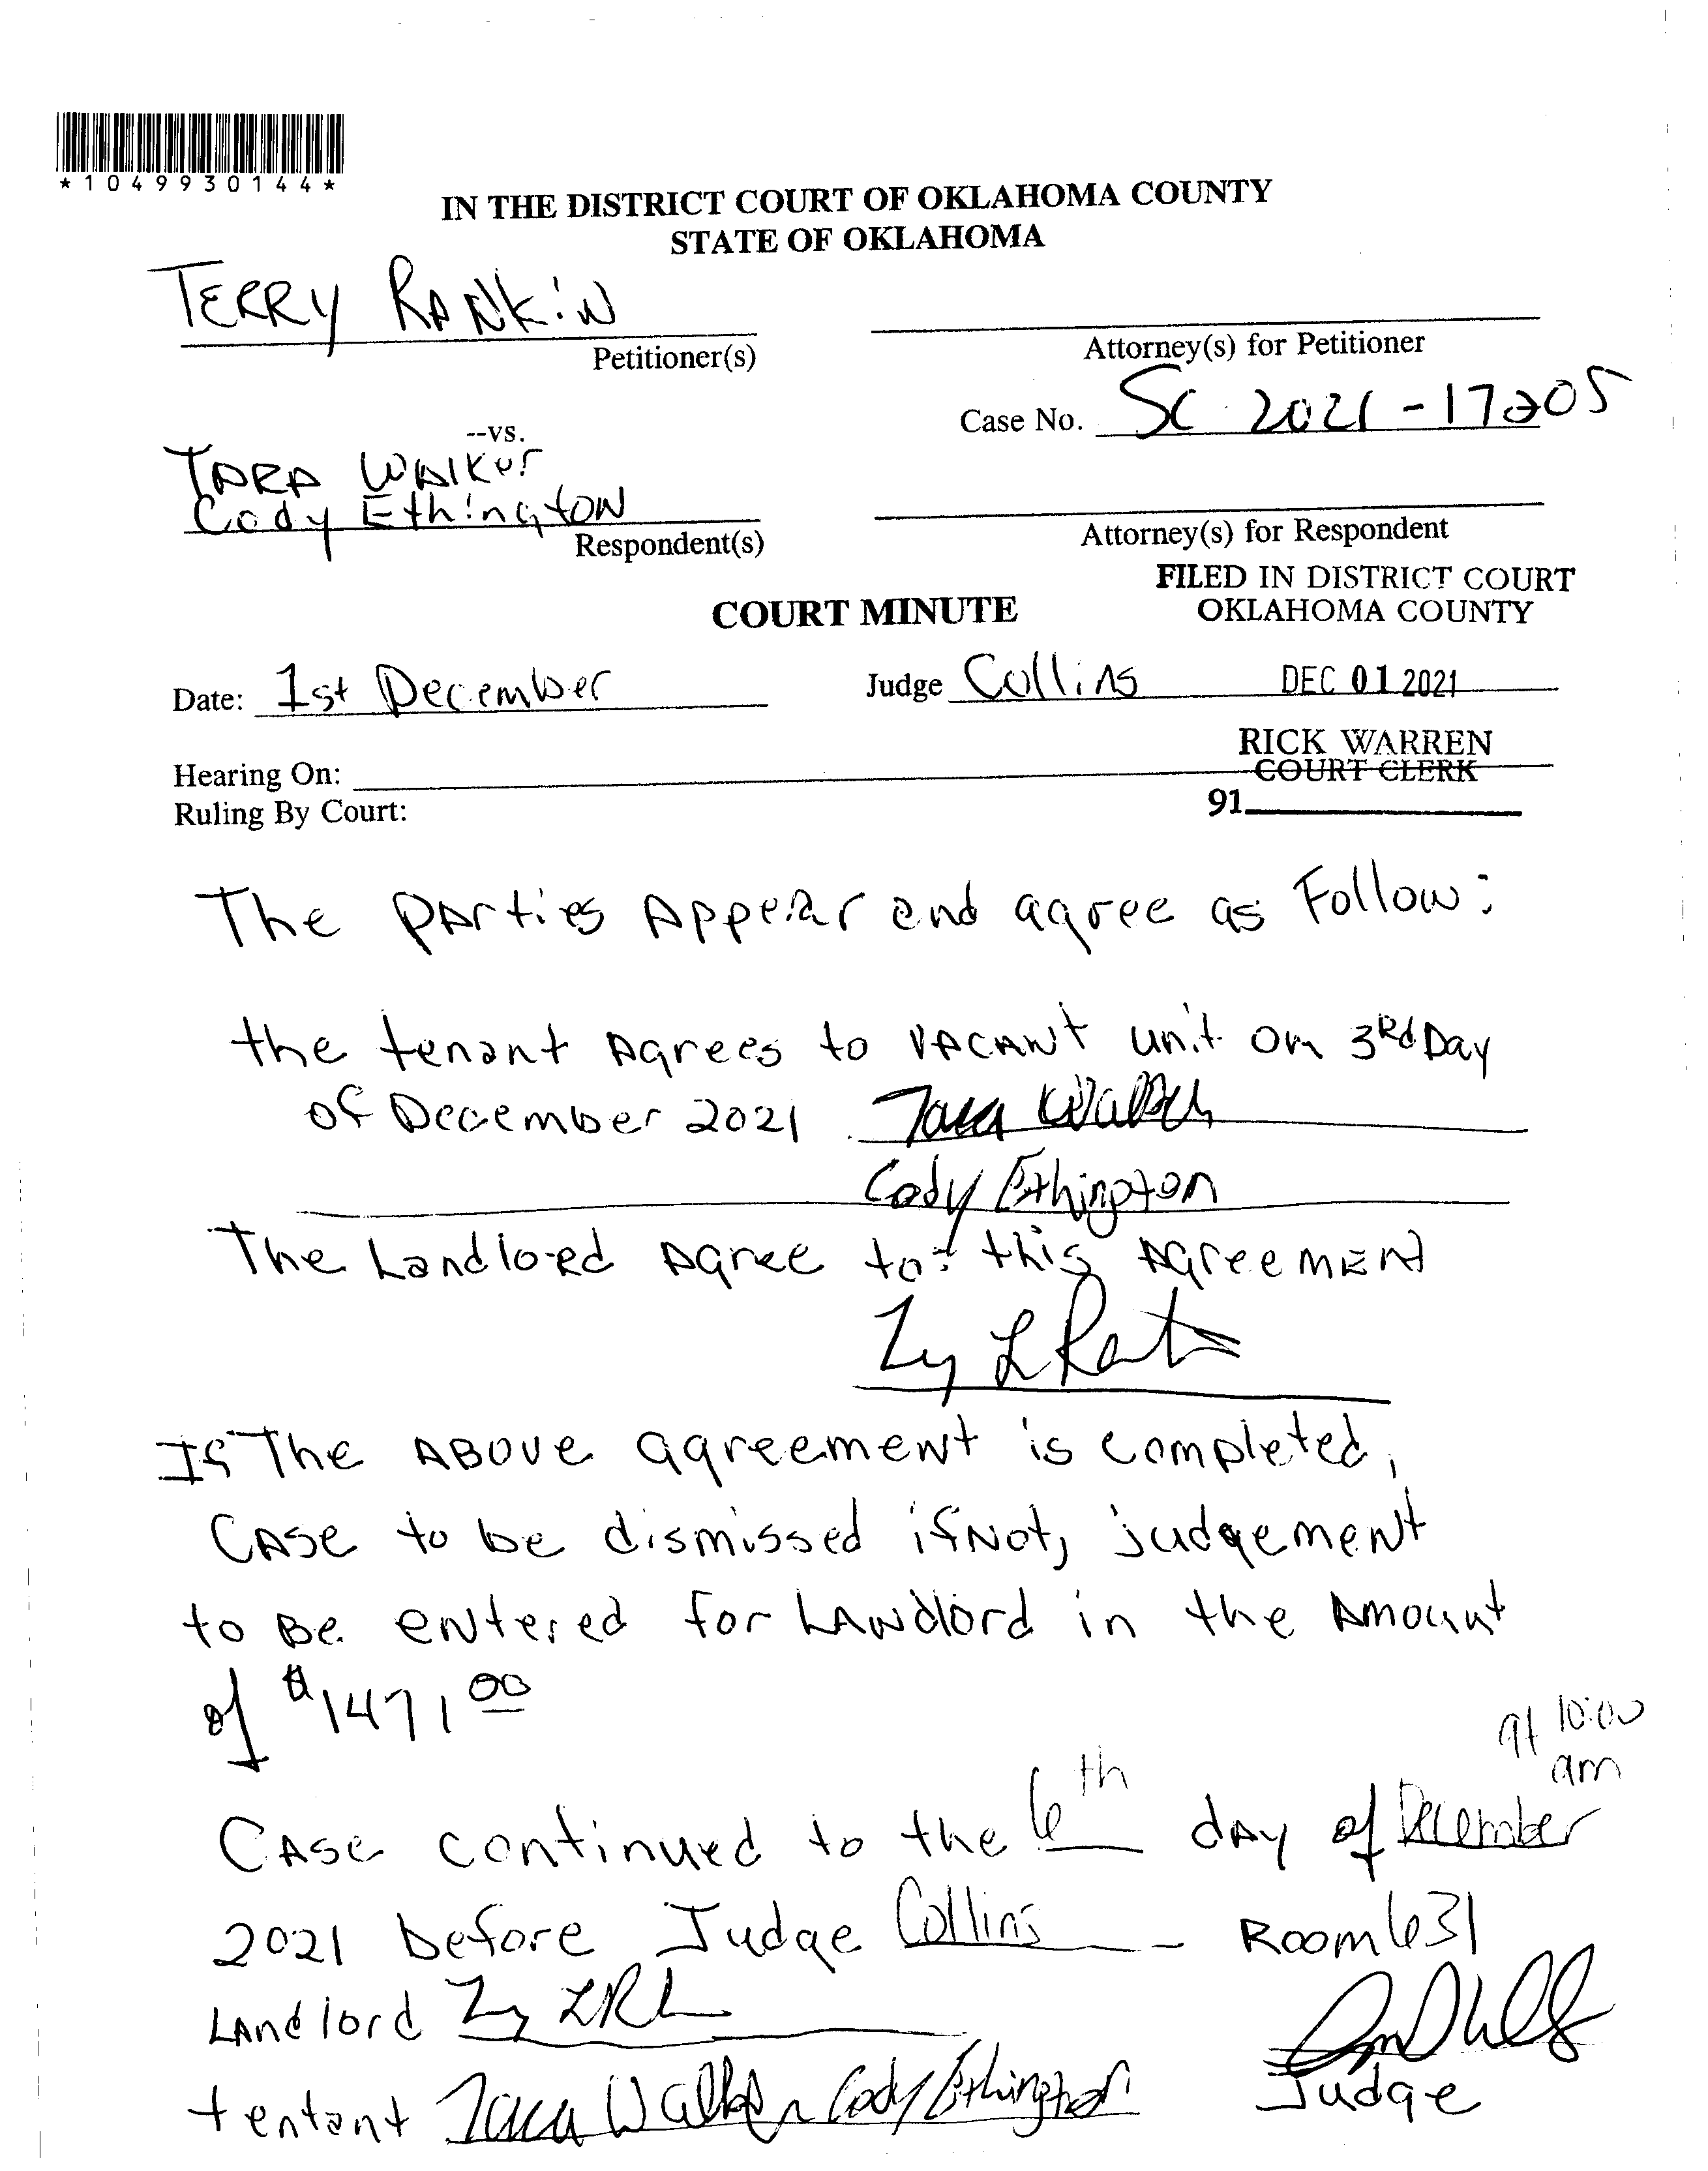 *1049930144*
IN THE DISTRICT COURT OF OKLAHOMA COUNTY
STATE OF OKLAHOMA
TERRY RANKIN
Petitioner(s)
Attorney(s) for Petitioner
Case No. SC 2021-17205
--vs.
TARA WALKER
Cody Ethington
Respondent(s)
Attorney(s) for Respondent
FILED IN DISTRICT COURT
OKLAHOMA COUNTY
COURT MINUTE
Date: 1st December
Judge Collins
DEC 01 2021
RICK WARREN
COURT CLERK
Hearing On:
Ruling By Court:
91
The parties Appear and agree as Follow:
the tenant Agrees to VACANT unit on 3Rd Day
of December 2021 Tara Walker
Cody Ethington
The Landlord Agree to: this Agreement
If The ABOVE agreement is completed,
CASE to be dismissed if Not, judgement
to Be entered for LANdlord in the Amount
of $1471 00
at 10:00
am
CASE continued to the 6th day of December
2021 before Judge Collins Room 631
LAndlord
tentant Tara Walker Cody Ethington
Judge